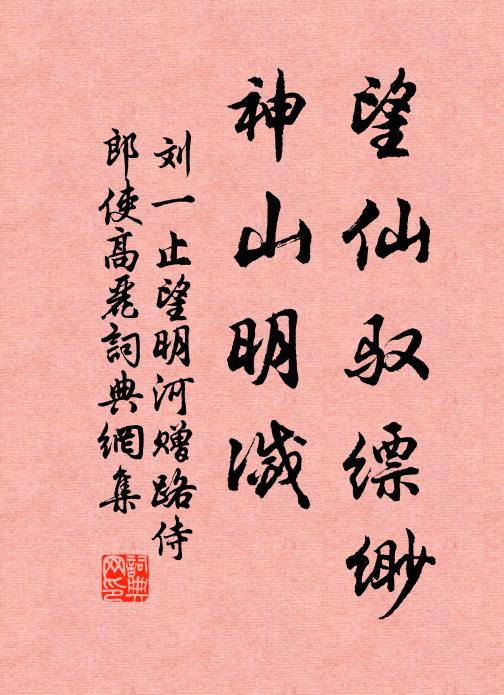 望仙驭缥缈
神山明灭
刘一止望明河赠路侍
郎使高丽詞典網集
詞典网印